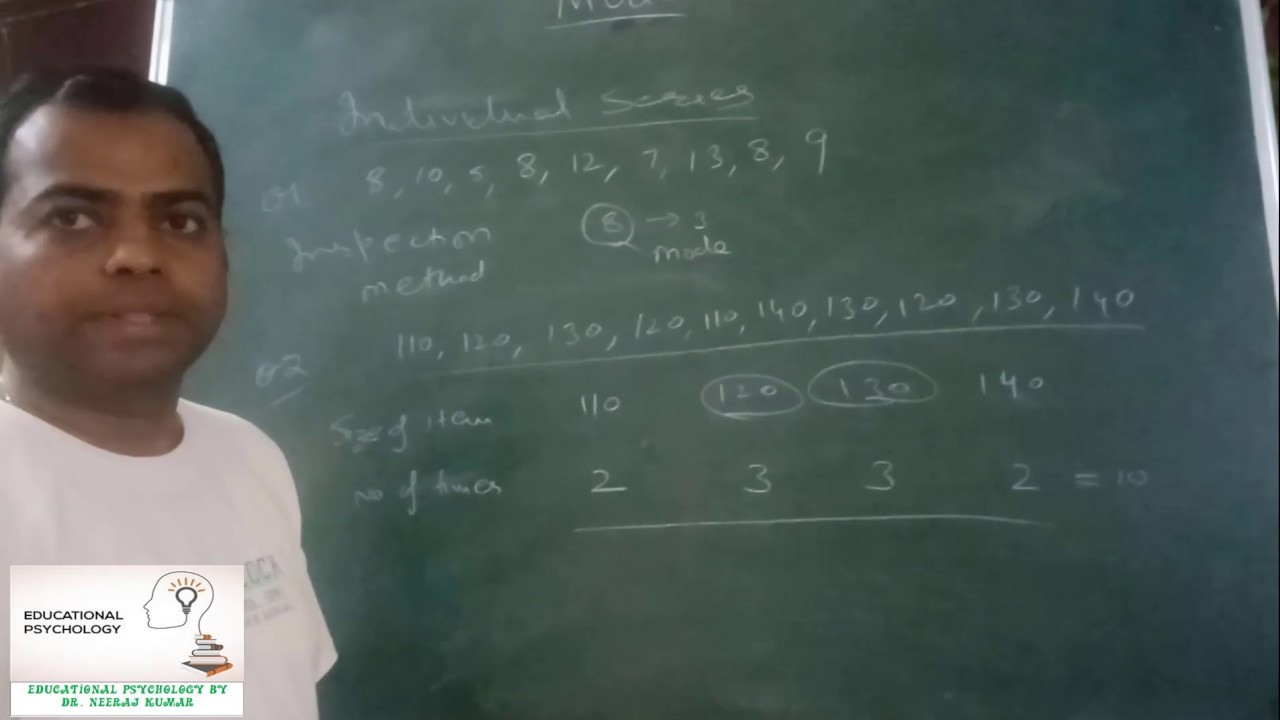 Individual Series
Q1 8, 10, 5, 8, 12, 7, 13, 8, 9
Inspection 8 → 3
method mode
110, 120, 130, 120, 110, 140, 130, 120, 130, 140
Q2
Size of item 110 120 130 140
No of times 2 3 3 2 = 10
EDUCATIONAL
PSYCHOLOGY
EDUCATIONAL PSYCHOLOGY BY
DR. NEERAJ KUMAR